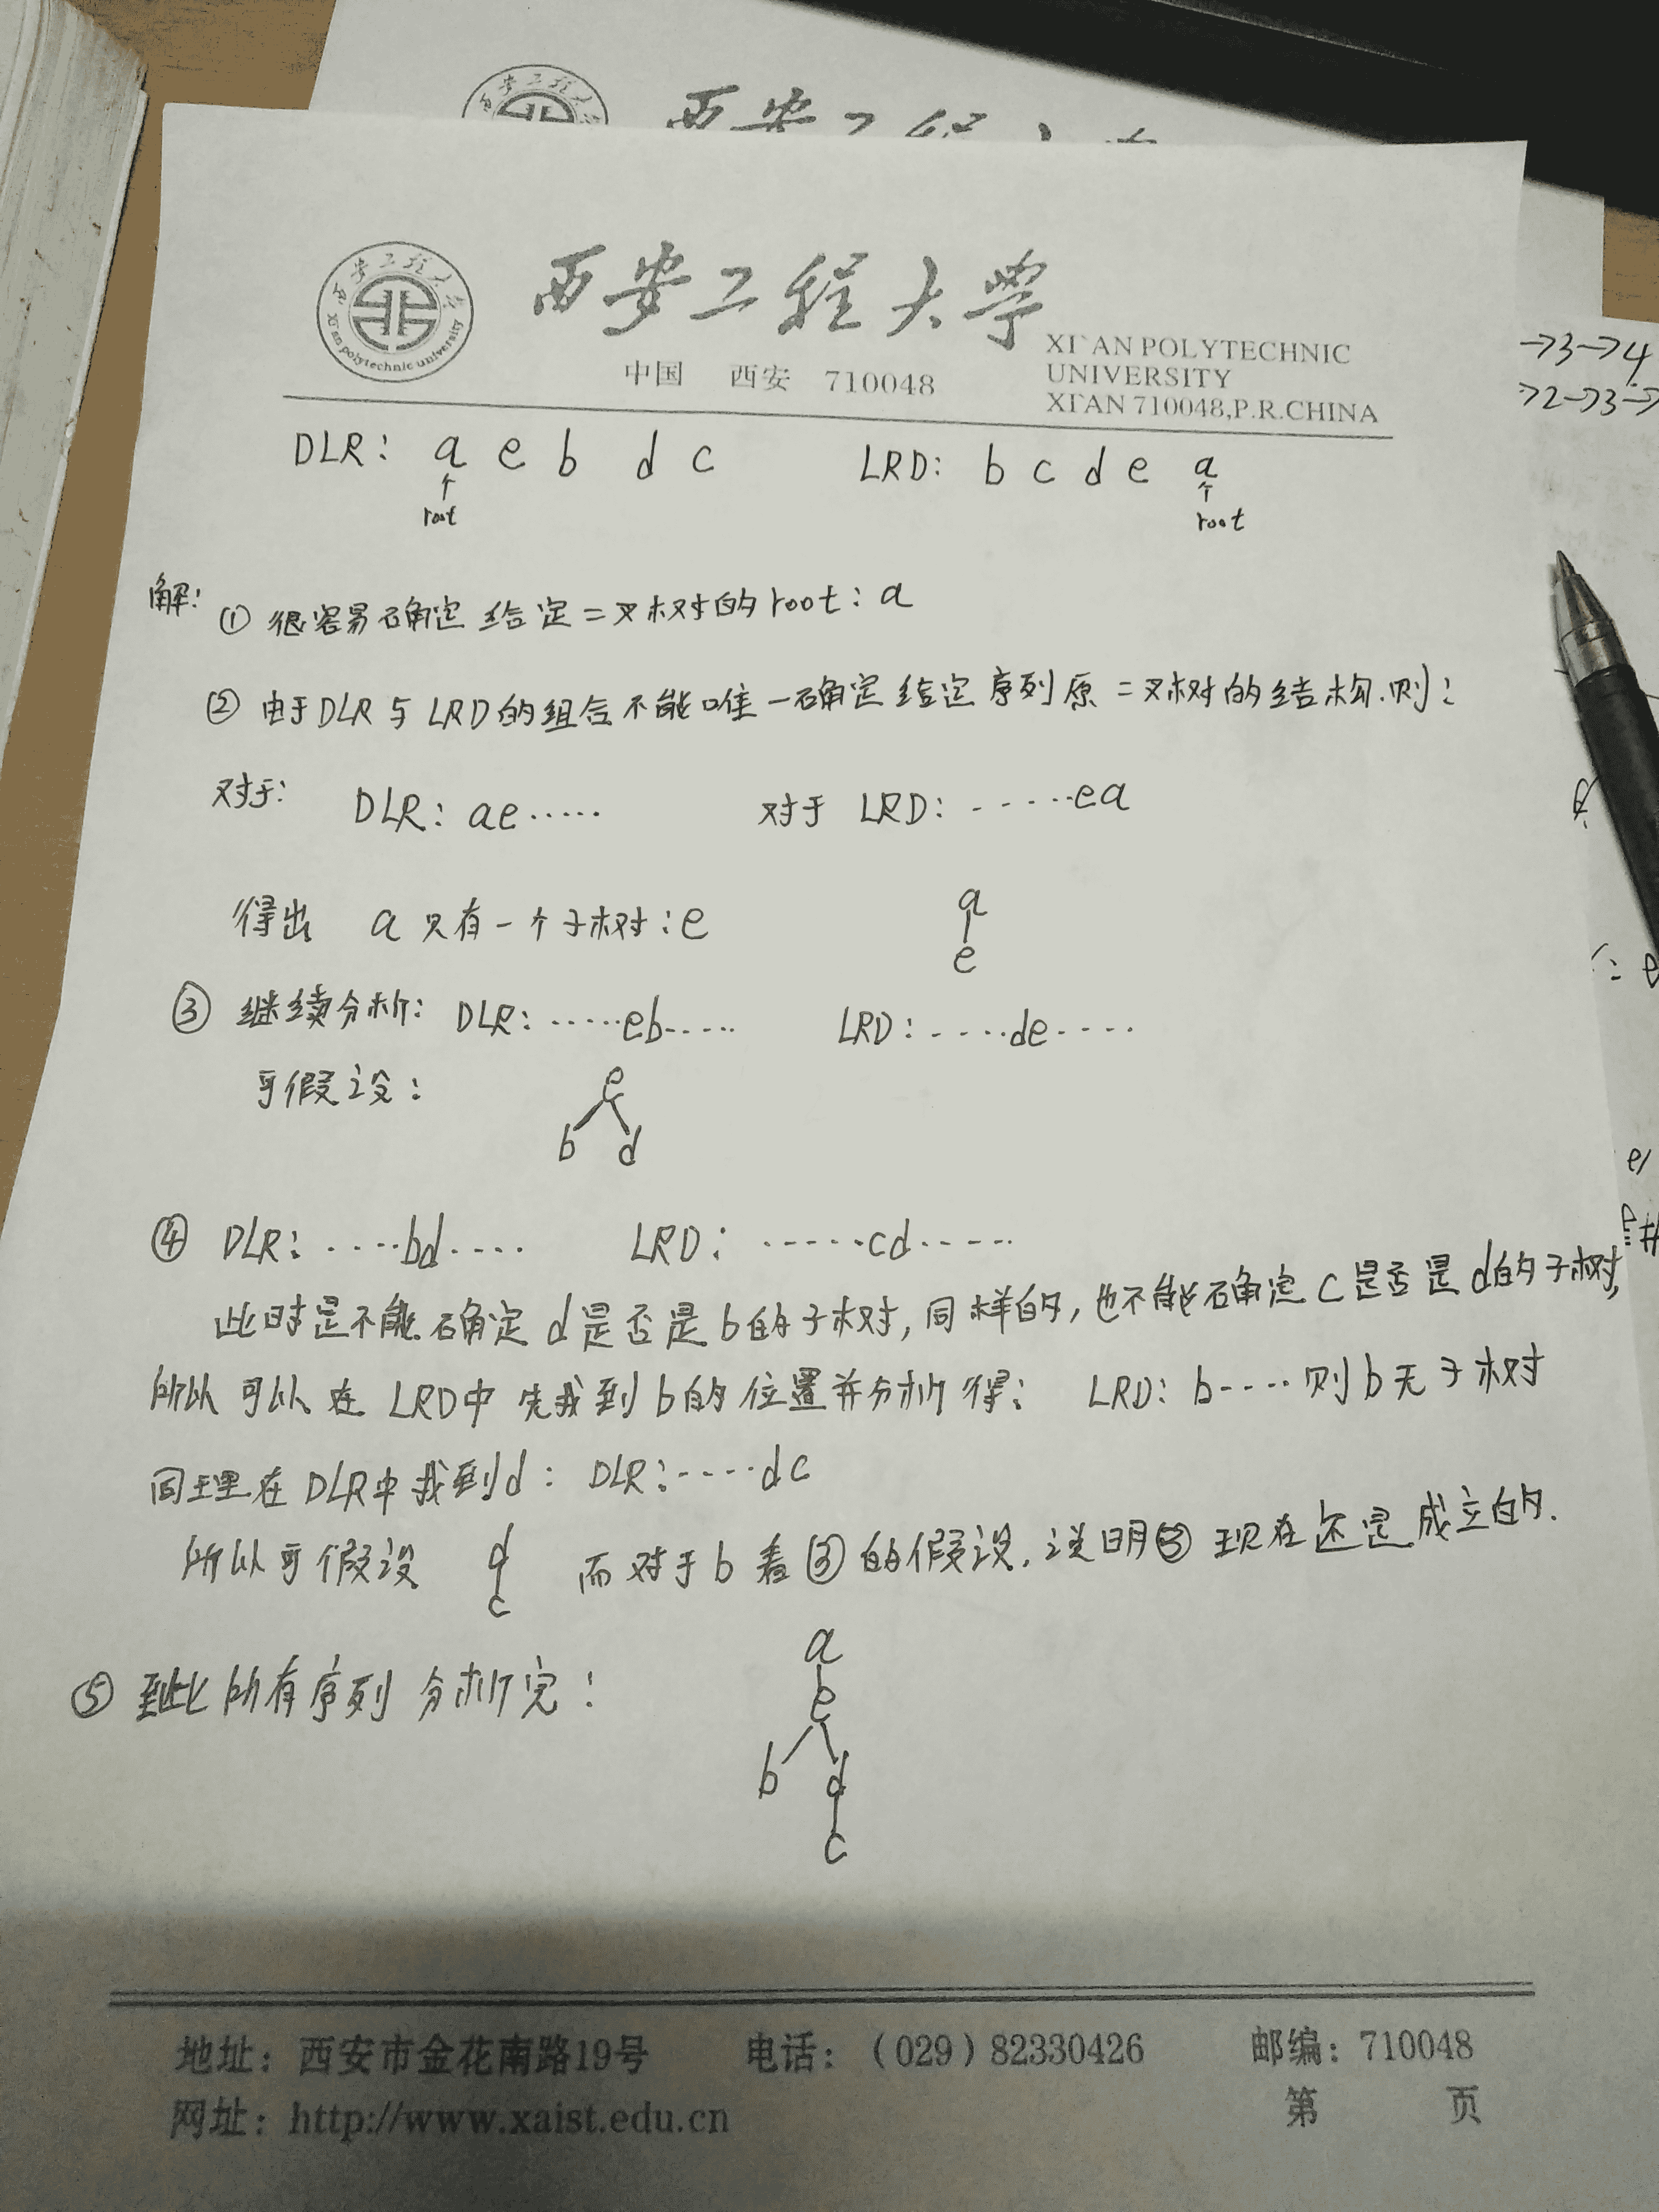 西安工程大学
西安工程大学
Xi'an polytechnic university
中国 西安 710048
XI`AN POLYTECHNIC
UNIVERSITY
XI`AN 710048,P.R.CHINA
→3→4
→2→3→
DLR: a e b d c LRD: b c d e a
↑ ↑
root root
解: ① 很容易确定给定二叉树的root: a
② 由于DLR与LRD的组合不能唯一确定给定序列原二叉树的结构.则:
对于: DLR: ae…… 对于 LRD: ……ea
得出 a只有一个子树:e
a
e
③ 继续分析: DLR: ……eb…… LRD: ……de……
可假设:
e
b d
④ DLR: ……bd…… LRD: ……cd……
此时是不能确定d是否是b的子树,同样的,也不能确定c是否是d的子树,
所以可以在LRD中先找到b的位置并分析得: LRD: b……则b无子树
同理在DLR中找到d: DLR:……dc
所以可假设 d 而对于b看③的假设.说明③现在还是成立的.
c
⑤ 到此所有序列分析完:
a
e
b d
c
地址：西安市金花南路19号 电话：（029）82330426 邮编：710048
网址：http://www.xaist.edu.cn 第 页